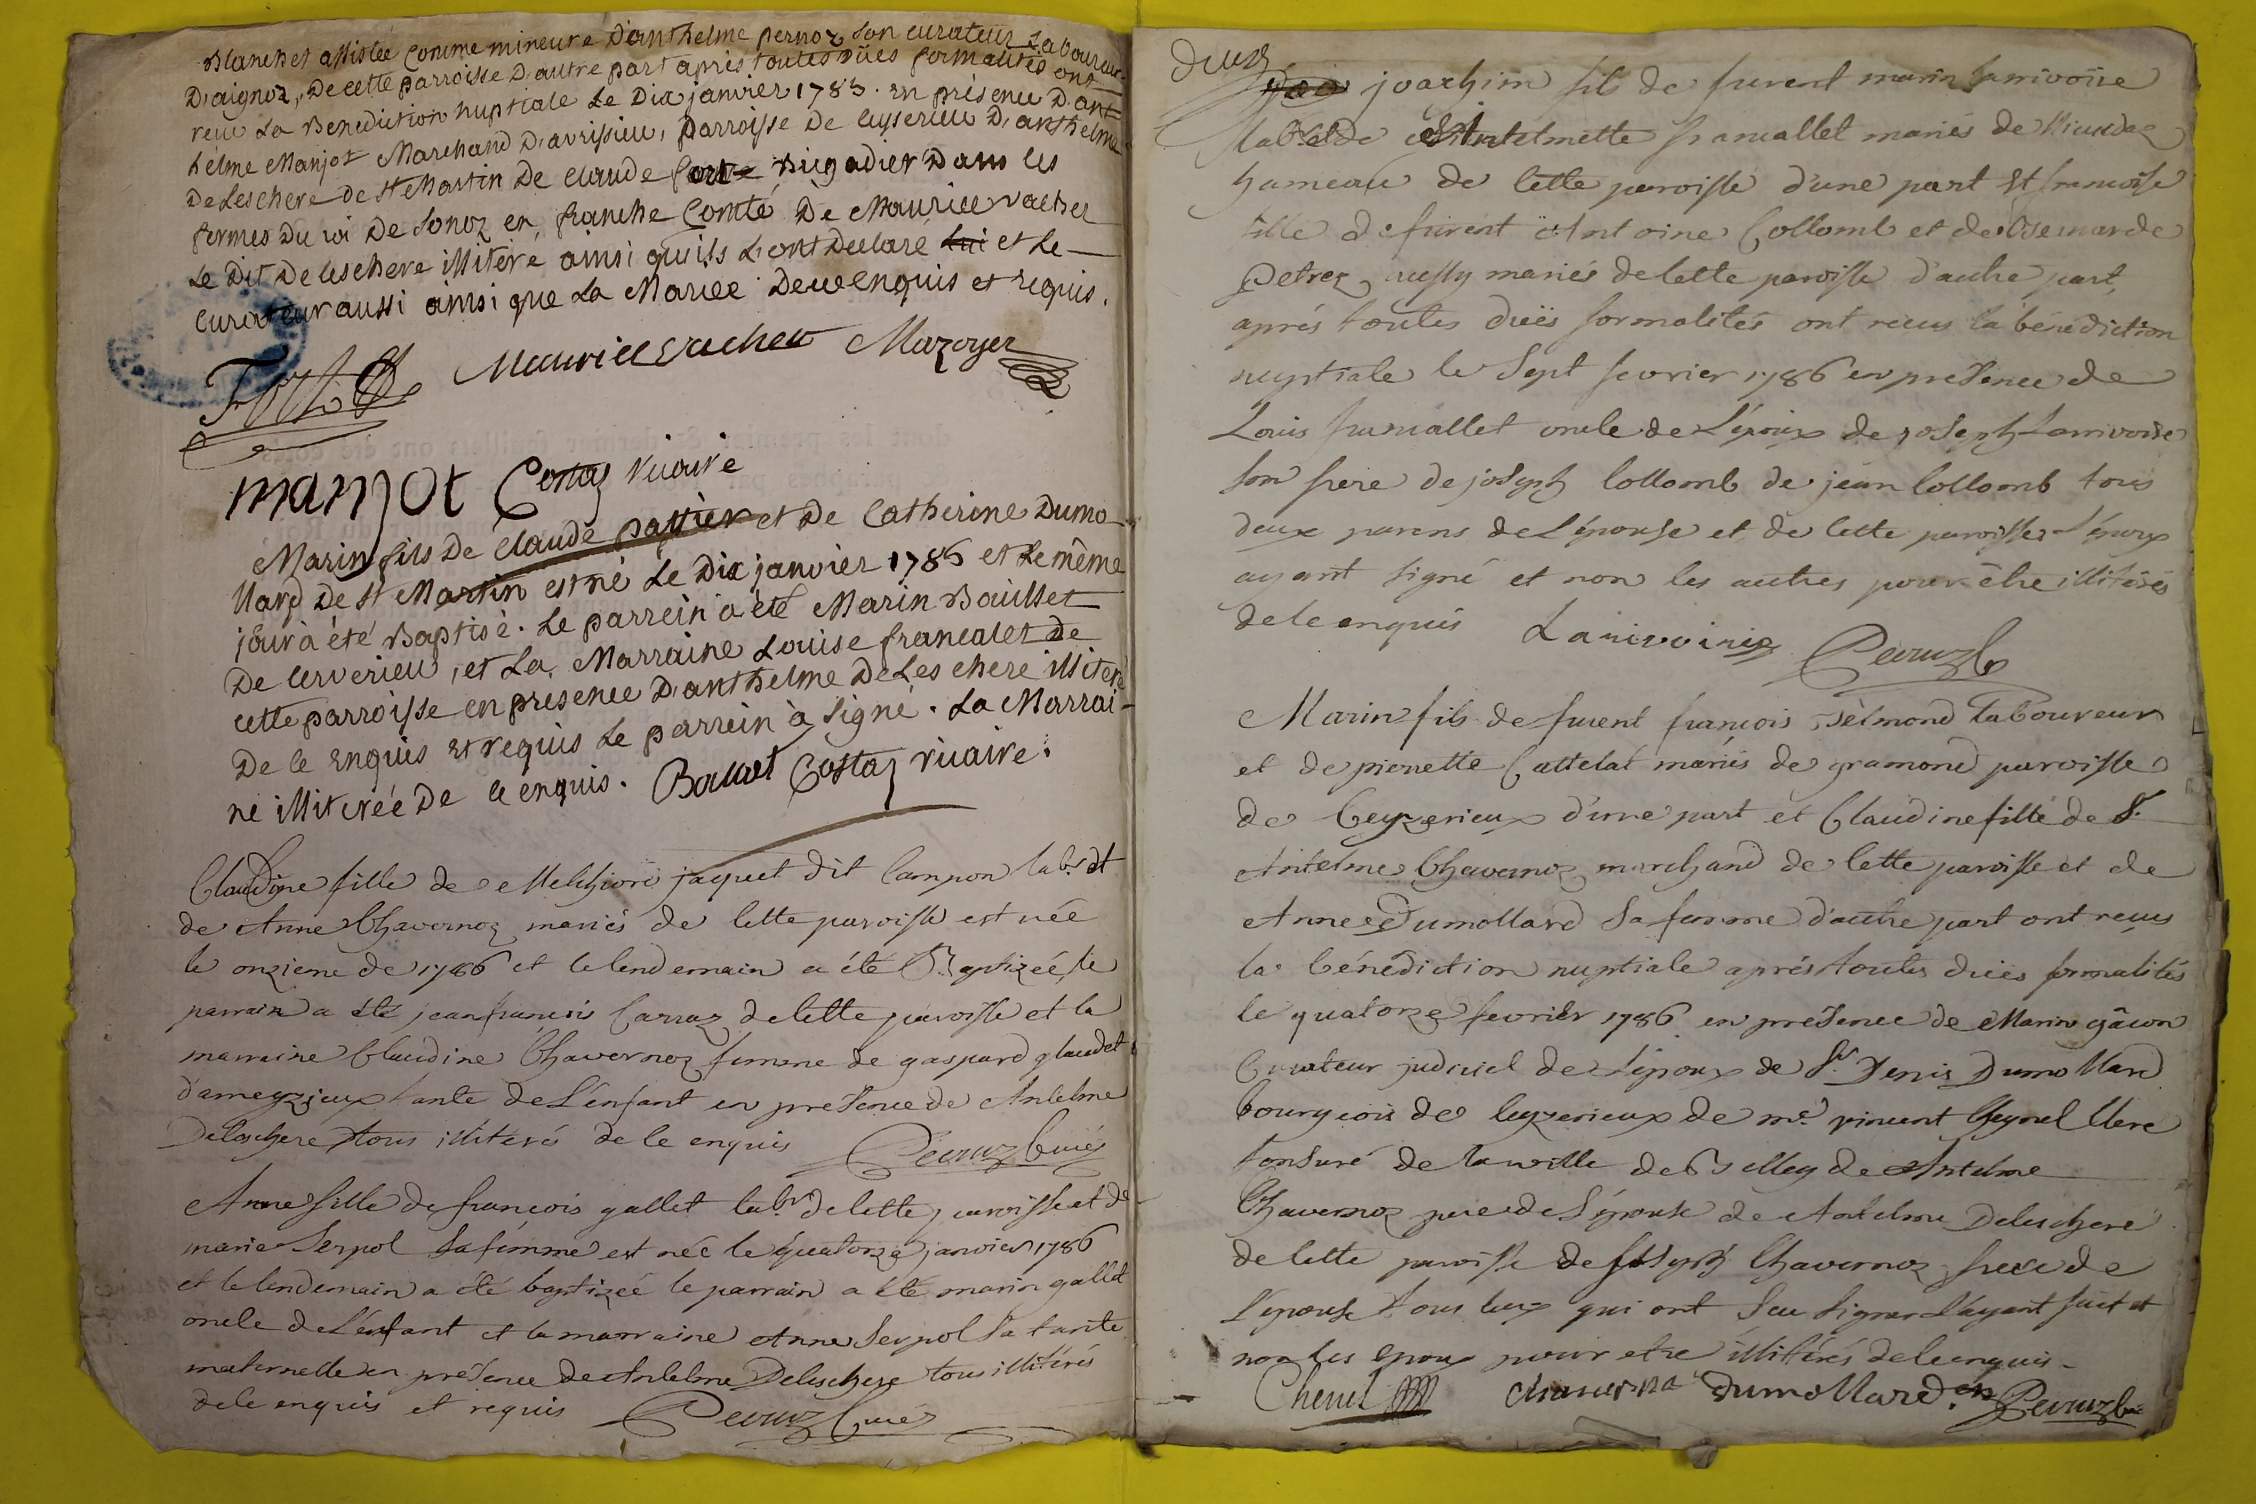 Blanchet assistée comme mineure D'anthelme pernoz son curateur Laboureur
D'aignoz, De cette parroisse D'autre part après toutes dües formalités ont
reçu La Benediction nuptiale Le Dix janvier 1786. en présence D'ant
hélme Manjot Marchand D'avrisieu, parroisse De ceyserieu D'anthelme
De Leschere de St Martin De claude Brigadier Dans les
fermes Du roi De Sonoz en franche Comté De Maurice vachet
Le Dit De Leschere illitéré ainsi qu'ils L'ont Declaré et Le
curateur aussi ainsi que La Mariée De ce enquis et requis.
Maurice vachet Mazoyer
manjot Costaz vicaire
Marin fils De claude pattier et De Catherine Dumo
llard De St Martin est né Le Dix janvier 1786 et Le même
jour à été Baptisé. Le parrein à été Marin Baillet
De cerverieu, et La Marraine Louise francalet De
cette parroisse en presence D'anthelme De Leschere illiteré
De ce enquis et requis Le parrein à signé. La Marrai
ne illiterée De ce enquis. Baillet Costaz vicaire.
Claudine fille de Melchior jaquet dit Campon labr et
de Anne Chavernoz mariés de cette paroisse est née
le onzieme de 1786 et le lendemain a été Baptizée, le
parrain a été jean francois Carraz de cette paroisse et la
marraine Claudine Chavernoz femme de gaspard glaudet
d'ameyzieux tante de L'enfant en présence de Antelme
Deleschere tous illitérés de ce enquis Perruz Curé
Anne fille de françois gallet labr de cette paroisse et de
marie Serpol sa fémme est née le quatorze janvier 1786
et le lendemain a été baptizée le parrain a été marin gallet
oncle de L'enfant et la marraine Anne Serpol sa tante
maternelle en présence de Antelme Deleschere tous illitérés
de ce enquis et requis Peruz Curé
deux
joachim fils de furent marin Larrivoire
labr et de Antelmette francallet mariés de
hameau de cette paroisse d'une part Et francoise
fille de furent Antoine Collomb et de Bernarde
Petrez aussy mariés de cette paroisse d'autre part,
aprés toutes düës formalités ont recus la bénédiction
nuptiale le sept fevrier 1786 en présence de
Louis francallet oncle de L'époux de joseph Larrivoire
son frere de joseph Collomb de jean Collomb tous
deux parens de L'épouse et de cette paroisse L'époux
ayant signé et non les autres pour être illitérés
de ce enquis Larivoire Peruz C
Marin fils de furent françois Selmond Laboureur
et de pierrette Cattelat mariés de gramond paroisse
de Ceyzerieux d'une part et Claudine fille de Sr
Antelme Chavernoz marchand de cette paroisse et de
Anne Dumollard sa femme d'autre part ont reçus
la bénédiction nuptiale aprés toutes düës formalités
le quatorze fevriér 1786 en présence de Marin gâcon
Curateur judiciel de L'époux de Sr Denis Dumollard
bourgeois de Ceyzerieux de me vincent Cheynel Clerc
tonsuré de la ville de Belley de Antelme
Chavernoz pere de L'épouse de Antelme Deleschere
de cette paroisse de joseph Chavernoz frere de
L'épouse tous ceux qui ont sçu signer L'ayant fait et
non les époux pour etre illitérés de ce enquis
Chenel Chavernoz Dumollard Peruz C